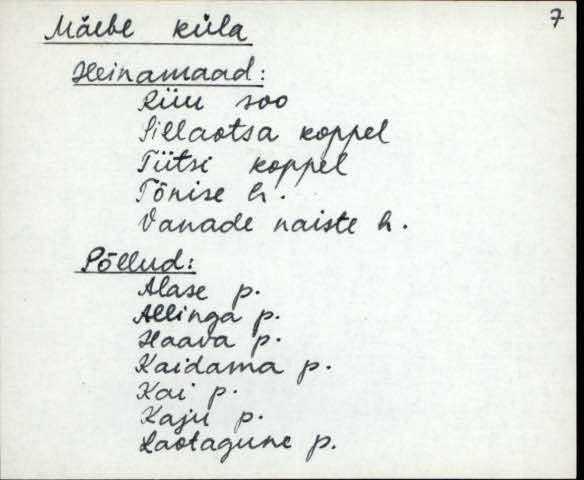 7
Mäebe küla
Heinamaad:
Rüü soo
Sillaotsa koppel
Tütsi koppel
Tõnise h.
Vanade naiste h.
Põllud:
Alase p.
Allinga p.
Haava p.
Kaidama p.
Kai p.
Kaju p.
Laotagune p.